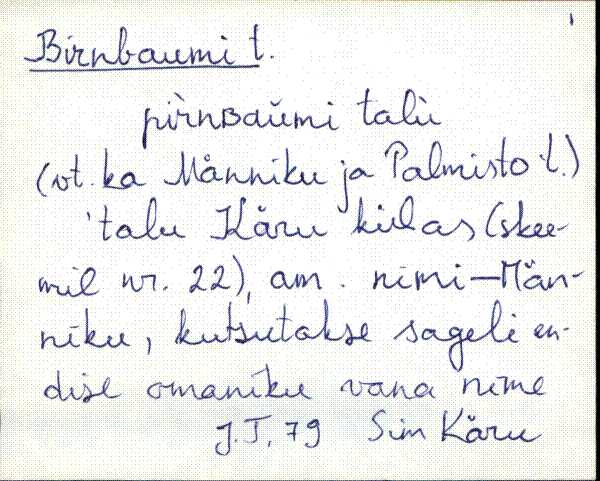 1
Birnbaumi t.
pìrnʙaŭmi talù
(vt. ka Männiku ja Palmisto t.)
'talu Käru külas (skee-
mil nr. 22), am. nimi—Män-
niku, kutsutakse sageli en-
dise omaniku vana nime
J.T. 79 Sim Käru